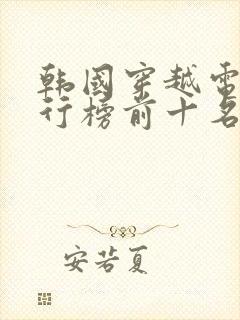 韩国穿越电
行榜前十名
安若夏